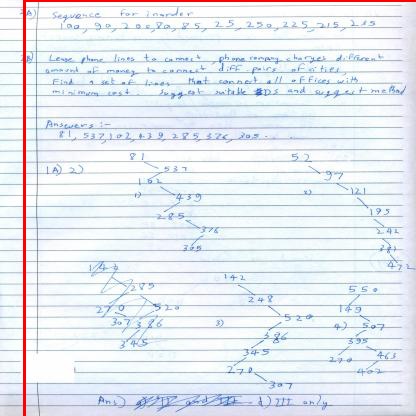 2A) Sequence for inorder
100, 90, 200, 80, 85, 25, 250, 225, 215, 235
2B) Lease phone lines to connect, phone company charges different
amount of money to connect diff pairs of cities,
Find a set of lines that connect all offices with
minimum cost. Suggest suitable DS and suggest method
Answers :-
81, 537, 102, 439, 285, 376, 305 . . .
1A) 2)
81
537
102
1) 439
285
376
305
52
97
2) 121
195
242
381
472
142
285
270 520
307 386
345
142
248
3) 520
386
345
270
307
550
149
4) 507
395
270 463
402
Ans) d) III only